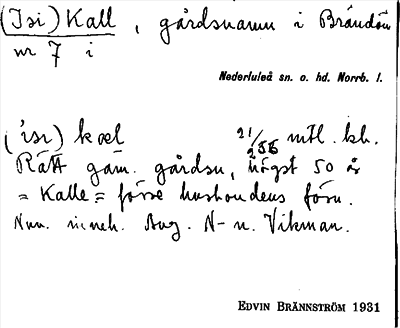 (Isi) Kall, gårdsnamn i Brändön
nr 7 i
Nederluleå sn. o. hd. Norrb. l.
('isi) kal 21/256 mtl. kh.
Rätt gam. gårdsn, högst 50 år
= Kalle = förre husbondens förn.
Nuv. inneh. Aug. N-n. Vikman.
EDVIN BRÄNNSTRÖM 1931